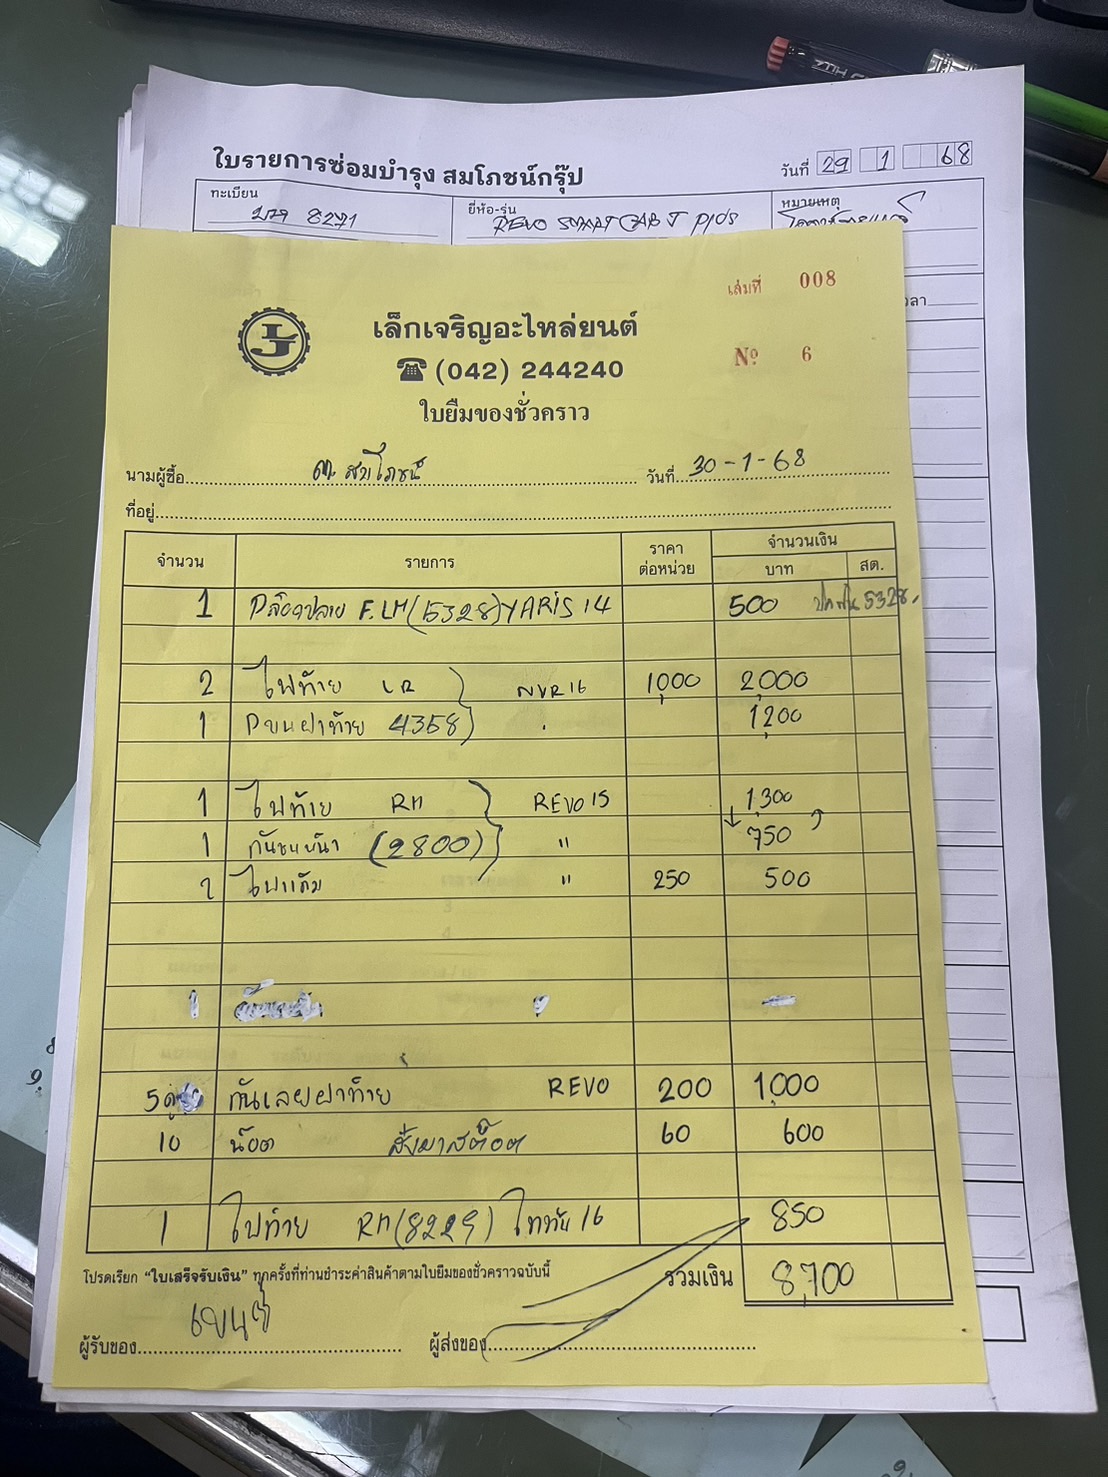 ใบรายการซ่อมบำรุง สมโภชน์กรุ๊ป
วันที่ 29 1 68
ทะเบียน
8271
ยี่ห้อ-รุ่น
REVO SMART CAB J plus
หมายเหตุ
เล่มที่ 008
เล็กเจริญอะไหล่ยนต์
☎ (042) 244240
Nº 6
ใบยืมของชั่วคราว
นามผู้ซื้อ สมโภชน์ วันที่ 30-1-68
ที่อยู่
จำนวน รายการ ราคาต่อหน่วย จำนวนเงิน
บาท สต.
1 F.LH (5328) YARIS 14 500 5328
2 ไฟท้าย LR NVR16 1,000 2,000
1 ฝาท้าย 4358 1,200
1 ไฟท้าย RH REVO 15 1,300
1 กันชนหน้า (2800) " 750
2 ไฟแก้ม " 250 500
5 คู่ กันเลยฝาท้าย REVO 200 1,000
10 น๊อต 60 600
1 ไฟท้าย RH (8229) ไททัน 16 850
โปรดเรียก "ใบเสร็จรับเงิน" ทุกครั้งที่ท่านชำระค่าสินค้าตามใบยืมของชั่วคราวฉบับนี้
รวมเงิน 8,700
ผู้รับของ ผู้ส่งของ